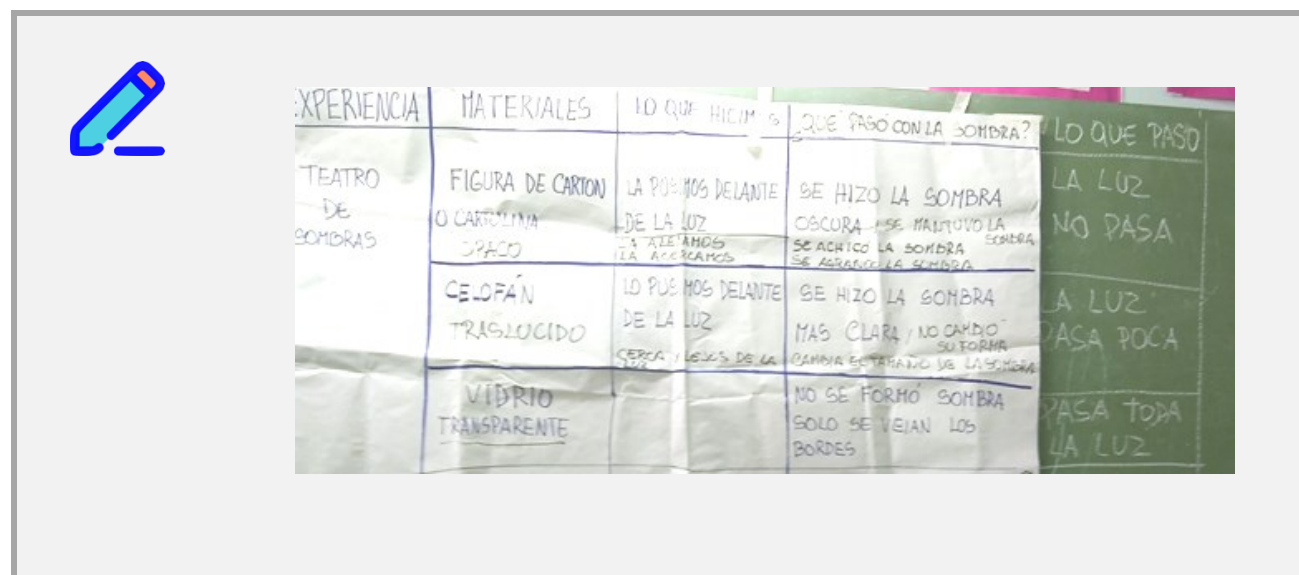 EXPERIENCIA
MATERIALES
LO QUE HICIMOS
QUE PASÓ CON LA SOMBRA?
LO QUE PASO
TEATRO
DE
SOMBRAS
FIGURA DE CARTON
O CARTULINA
OPACO
LA PUSIMOS DELANTE
DE LA LUZ
LA ALEJAMOS
LA ACERCAMOS
SE HIZO LA SOMBRA
OSCURA, SE MANTUVO LA
SOMBRA
SE ACHICÓ LA SOMBRA
SE AGRANDO LA SOMBRA
LA LUZ
NO PASA
CELOFÁN
TRASLUCIDO
LO PUSIMOS DELANTE
DE LA LUZ
CERCA Y LEJOS DE LA
LUZ
SE HIZO LA SOMBRA
MAS CLARA, NO CAMBIÓ
SU FORMA
CAMBIA EL TAMAÑO DE LA SOMBRA
LA LUZ
PASA POCA
VIDRIO
TRANSPARENTE
NO SE FORMÓ SOMBRA
SOLO SE VEIAN LOS
BORDES
PASA TODA
LA LUZ